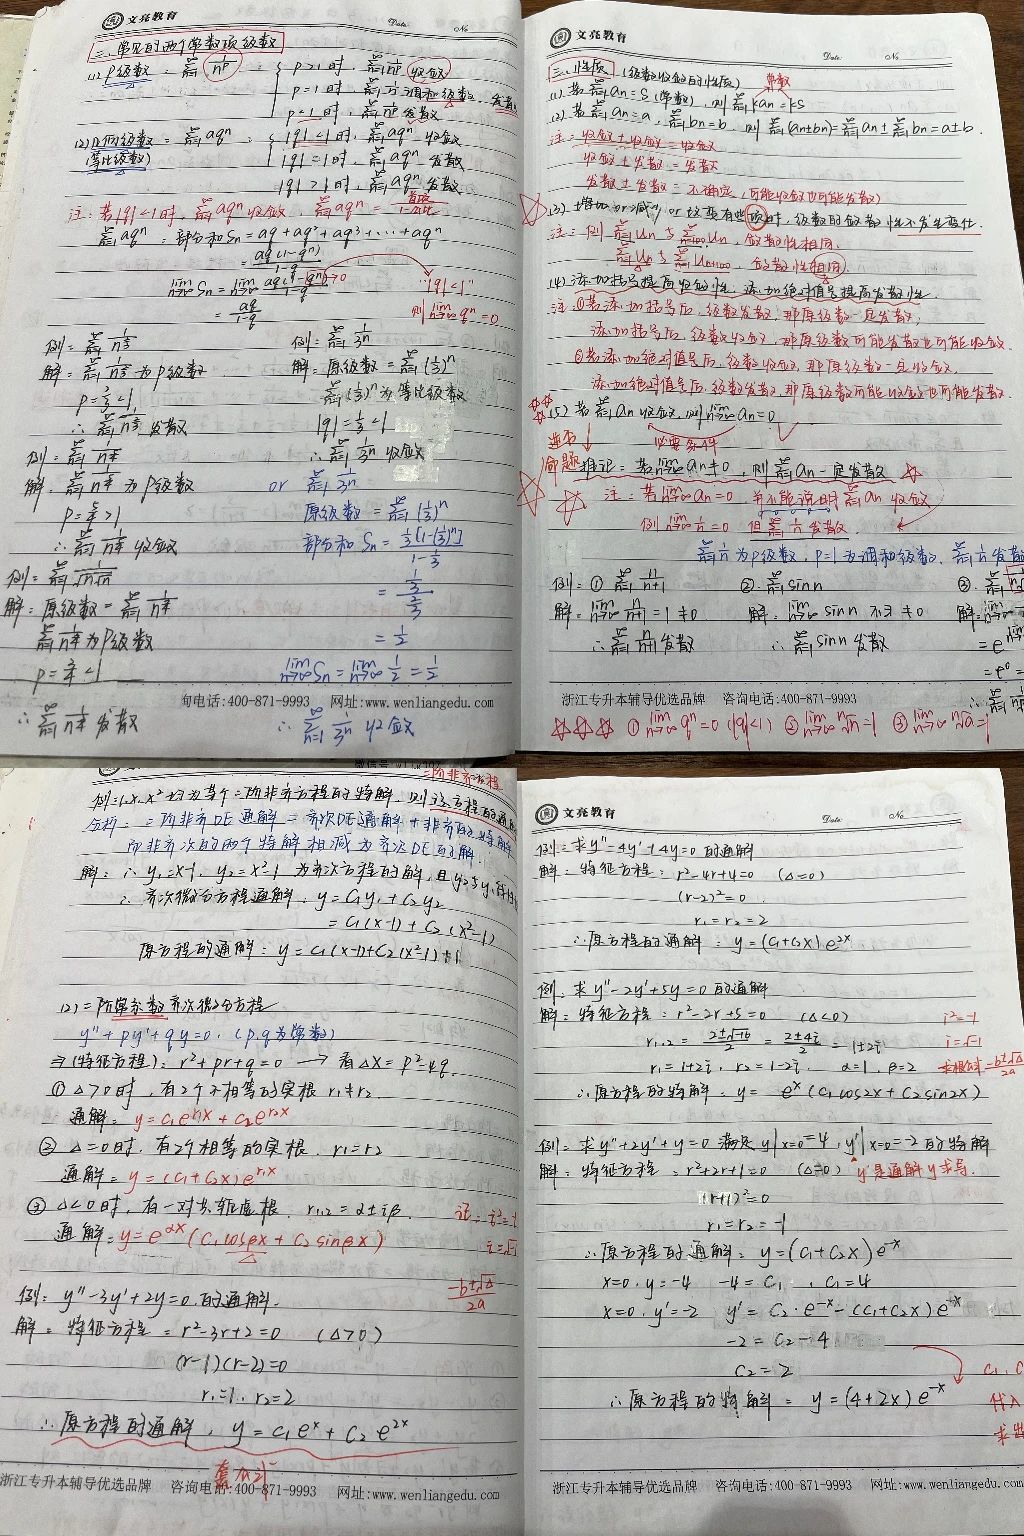 文亮教育
Date: No
二、常见的两个常数项级数
(1) P级数: ∑(n=1→∞) 1/n^p : { p>1时, ∑(n=1→∞) 1/n^p 收敛
p=1时, ∑(n=1→∞) 1/n 调和级数, 发散
p<1时, ∑(n=1→∞) 1/n^p 发散
(2) 几何级数: ∑(n=1→∞) aq^n : { |q|<1时, ∑(n=1→∞) aq^n 收敛
(等比级数) |q|=1时, ∑(n=1→∞) aq^n 发散
|q|>1时, ∑(n=1→∞) aq^n 发散
注: 若|q|<1时, ∑(n=1→∞) aq^n 收敛, ∑(n=1→∞) aq^n = 首项/(1-公比)
∑(n=1→∞) aq^n : 部分和Sn = aq+aq²+aq³+…+aq^n
= aq(1-q^n)/(1-q)
lim(n→∞) Sn = lim(n→∞) aq(1-q^n)/(1-q) →0 "|q|<1"
= aq/(1-q) 则 lim(n→∞) q^n = 0
例: ∑(n=1→∞)
解: ∑(n=1→∞) 为P级数
∴ 发散
例: ∑(n=1→∞)
解: ∑(n=1→∞) 为P级数
∴ 收敛
例: ∑(n=1→∞)
解: 原级数 = ∑(n=1→∞)
为P级数
∴ 发散
例: ∑(n=1→∞) 1/3^n
解: 原级数 = ∑(n=1→∞) (1/3)^n
∑(n=1→∞) (1/3)^n 为等比级数
|q|=1/3<1
∴ ∑(n=1→∞) 1/3^n 收敛
or ∑(n=1→∞) 1/3^n
原级数 = ∑(n=1→∞) (1/3)^n
部分和 Sn = (1/3)[1-(1/3)^n]/(1-1/3)
= (1/3)/(2/3)
= 1/2
lim(n→∞) Sn = lim(n→∞) 1/2 = 1/2
∴ ∑(n=1→∞) 1/3^n 收敛
询电话:400-871-9993 网址:www.wenliangedu.com
文亮教育
Date: No
三、性质 (级数收敛的性质) 常数
(1) 若∑(n=1→∞) an = S (常数), 则∑(n=1→∞) kan = kS
(2) 若∑(n=1→∞) an = a, ∑(n=1→∞) bn = b, 则∑(n=1→∞) (an±bn) = ∑(n=1→∞) an ± ∑(n=1→∞) bn = a±b.
注: 收敛±收敛=收敛
收敛±发散=发散
发散±发散=不确定 (可能收敛也可能发散)
(3) 增加or减少or改变有些项时, 级数的敛散性不发生变化.
注: 例 ∑(n=1→∞) Un 与 ∑(n=100→∞) Un, 敛散性相同.
∑(n=1→∞) Un 与 ∑(n=1→∞) Un+100, 敛散性相同.
(4) 添加括号提高收敛性, 添加绝对值号提高发散性.
注: ①若添加括号后, 级数发散, 那原级数一定发散;
添加括号后, 级数收敛, 那原级数可能发散也可能收敛.
②若添加绝对值号后, 级数收敛, 那原级数一定收敛,
添加绝对值号后, 级数发散, 那原级数可能收敛也可能发散.
(5) 若∑(n=1→∞) an 收敛, 则 lim(n→∞) an = 0
逆否 必要条件
命题 推论: 若 lim(n→∞) an ≠ 0, 则∑(n=1→∞) an 一定发散
注: 若 lim(n→∞) an = 0 并不能说明∑(n=1→∞) an 收敛
例 lim(n→∞) 1/n = 0 但∑(n=1→∞) 1/n 发散.
∑(n=1→∞) 1/n 为P级数, P=1为调和级数, ∑(n=1→∞) 1/n 发散
例: ① ∑(n=1→∞) n/(n+1) ② ∑(n=1→∞) sinn ③. ∑(n=1→∞)
解: lim(n→∞) n/(n+1) = 1 ≠ 0 解: lim(n→∞) sinn 不∃ ≠ 0 解: lim(n→∞)
∴ ∑(n=1→∞) n/(n+1) 发散 ∴ ∑(n=1→∞) sinn 发散
= e⁰ =
浙江专升本辅导优选品牌 咨询电话:400-871-9993 网址:www.wenliangedu.com
① lim(n→∞) q^n = 0 (|q|<1) ② lim(n→∞) ⁿ√n = 1 ③ lim(n→∞) ⁿ√a = 1
二阶非齐方程
例: 1, x, x² 均为某个二阶非齐方程的特解, 则该方程的通
分析: 二阶非齐DE通解 = 齐次DE通解 + 非齐DE特解
而非齐次的两个特解相减为齐次DE的解.
解: ∵ y₁=x-1, y₂=x²-1 为齐次方程的解, 且y₂与y₁
∴ 齐次微分方程通解: y = C₁y₁+C₂y₂
= C₁(x-1)+C₂(x²-1)
原方程的通解: y = C₁(x-1)+C₂(x²-1)+1
(2) 二阶常系数齐次微分方程
y″+py′+qy=0. (p.q为常数)
⇒ (特征方程): r²+pr+q=0 → 看Δ = p²-4q
① Δ>0时, 有2个不相等的实根 r₁≠r₂
通解: y=C₁e^(r₁x)+C₂e^(r₂x)
② Δ=0时, 有2个相等的实根. r₁=r₂
通解: y=(C₁+C₂x)e^(r₁x)
③ Δ<0时, 有一对共轭虚根. r₁,₂=α±iβ. 记: i²=-1
通解: y=e^(αx)(C₁cosβx+C₂sinβx) i=√-1
(-b±√Δ)/2a
例: y″-3y′+2y=0 的通解.
解: 特征方程: r²-3r+2=0 (Δ>0)
(r-1)(r-2)=0
r₁=1. r₂=2
∴ 原方程的通解: y = C₁e^x + C₂e^(2x)
套公式
浙江专升本辅导优选品牌 咨询电话:400-871-9993 网址:www.wenliangedu.com
文亮教育
Date: No
例: 求y″-4y′+4y=0 的通解
解: 特征方程: r²-4r+4=0 (Δ=0)
(r-2)²=0
r₁=r₂=2
∴ 原方程的通解: y=(C₁+C₂x)e^(2x)
例: 求y″-2y′+5y=0 的通解
解: 特征方程: r²-2r+5=0 (Δ<0) i²=-1
r₁,₂ = (2±√-16)/2 = (2±4i)/2 = 1±2i i=√-1
r₁=1+2i, r₂=1-2i. α=1, β=2 求根公式 (-b±√Δ)/2a
∴ 原方程的特解: y= e^x(C₁cos2x+C₂sin2x)
例: 求y″+2y′+y=0 满足y|x=0=4, y′|x=0=-2 的特解
解: 特征方程: r²+2r+1=0 (Δ=0) y′是通解y求导.
(r+1)²=0
r₁=r₂=-1
∴ 原方程的通解: y=(C₁+C₂x)e^-x
x=0. y=-4 -4=C₁, C₁=4
x=0. y′=-2 y′=C₂·e^-x-(C₁+C₂x)e^-x
-2=C₂-4
C₂=2
∴ 原方程的特解: y=(4+2x)e^-x
代入
浙江专升本辅导优选品牌 咨询电话:400-871-9993 网址:www.wenliangedu.com